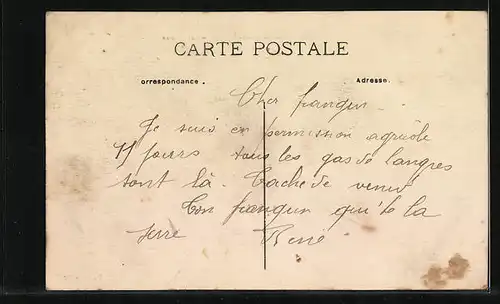 CARTE POSTALE
orrespondance.
Adresse.
Cher frangin
Je suis en permission agricole
15 jours tous les gas de langres
sont là. Tache de venir
Ton frangin qui te la
serre René